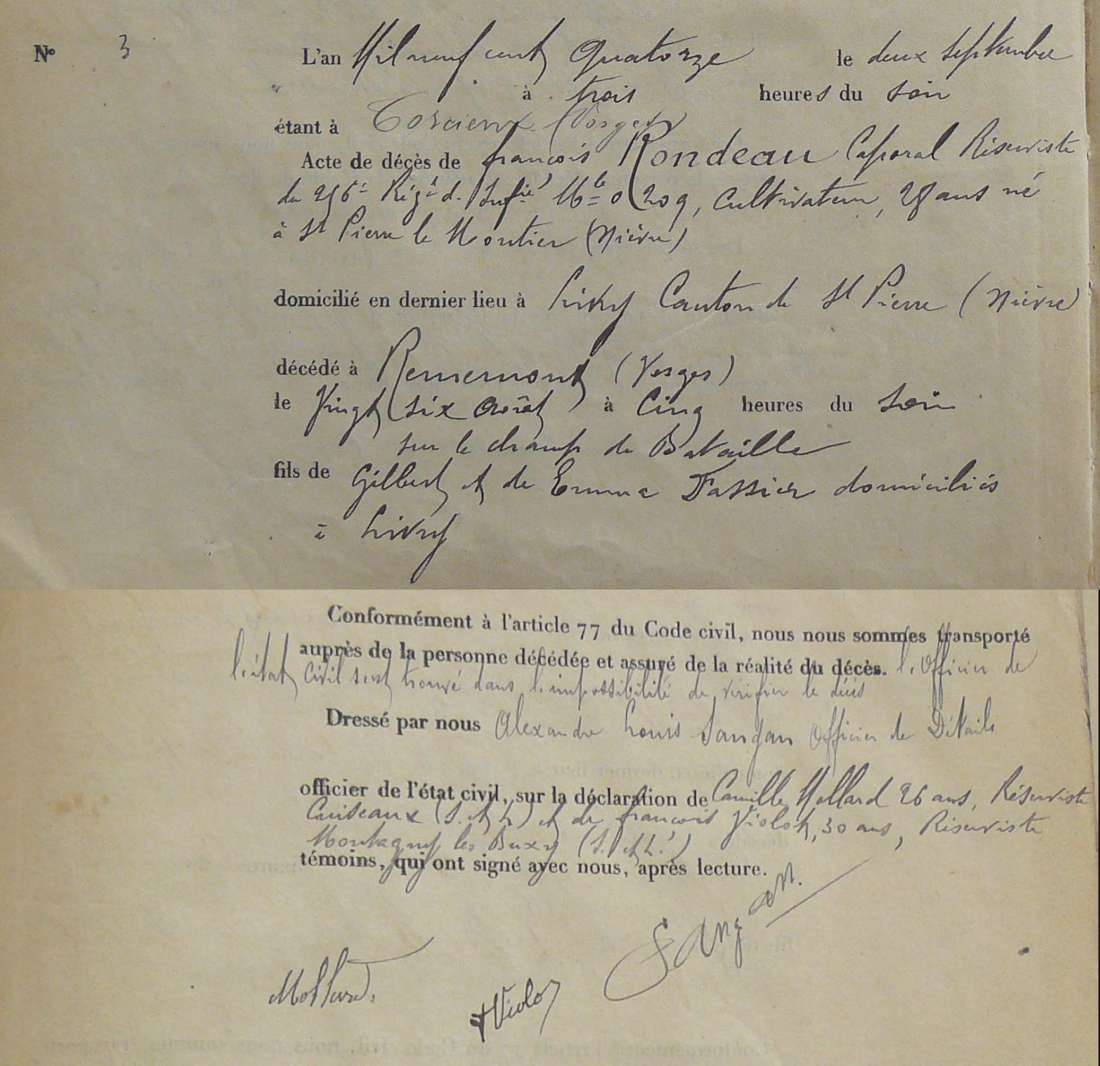 N° 3
L'an Mil neuf cent Quatorze le deux septembre
à trois heures du soir
étant à (Vosges)
Acte de décès de françois Rondeau Caporal Réserviste
du Régt d'Infie Mle 0209, cultivateur, 28 ans né
à St Pierre le Moutier (Nièvre)
domicilié en dernier lieu à Livry Canton de St Pierre (Nièvre)
décédé à Remémont (Vosges)
le Vingt six Août à Cinq heures du Soir
sur le champ de Bataille
fils de Gilbert et de Emma Tassier domiciliés
à Livry
Conformément à l'article 77 du Code civil, nous nous sommes transporté
auprès de la personne décédée et assuré de la réalité du décès. l'Officier de
l'état Civil s'est trouvé dans l'impossibilité de vérifier le décès
Dressé par nous Alexandre Louis Sangan Officier de Détails
officier de l'état civil, sur la déclaration de Camille Mollard 26 ans, Réserviste
Cuiseaux (S. et L.) et de françois Violot, 30 ans, Réserviste
Montagny les Buxy (S. et L.)
témoins, qui ont signé avec nous, après lecture.
Mollard.
Violot
Sangan.